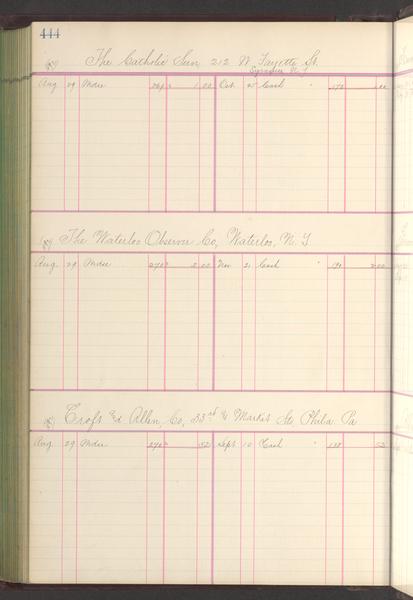 444
The Catholic Sun, 212 W. Fayette St.
Syracuse N.Y.
Aug 29 Mdse 1 00 Oct. Cash " 1 00
The Waterloo Observer Co, Waterloo, N.Y.
Aug. 29 Mdse 2 00 Nov 21 Cash " 2 00
Croft & Allen, Co, 33rd & Market Sts Phila. Pa
Aug 29 Mdse 52 Sept. 10 Cash " 52